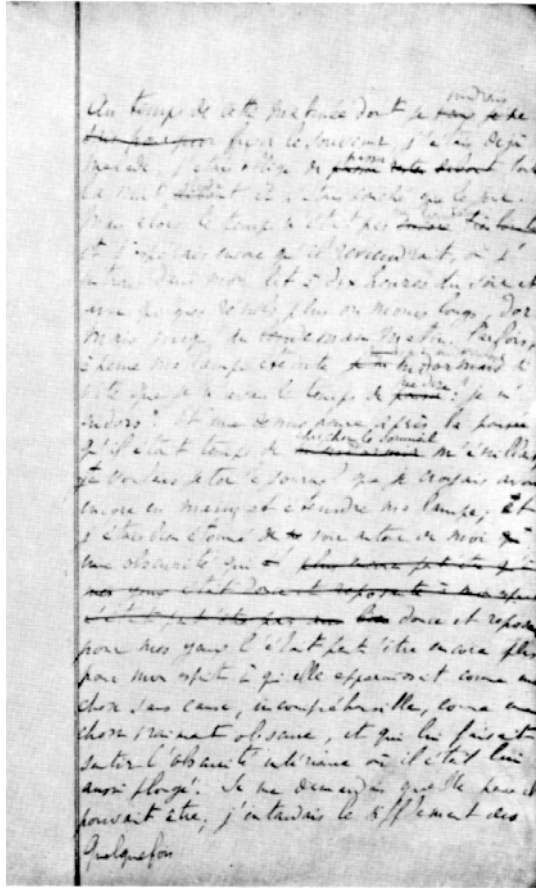 voudrais
Au temps de cette matinée dont je sais je ne
sais pas pour fixer le souvenir, j'étais déjà
malade, j'étais obligé de passer debout toute
la nuit et n'étais couché que le jour.
Mais alors le temps n'était pas très lointain
et j'espérais encore qu'il reviendrait, où j'
entrais dans mon lit à dix heures du soir et
avec quelques réveils plus ou moins longs, dor
mais jusqu'au lendemain matin. Parfois,
à peine ma lampe éteinte je m'endormais si
vite que je n'avais le temps de me dire : je m'
endors. Et une demi-heure après la pensée
qu'il était temps de chercher le sommeil m'éveillait,
je voulais jeter le journal que je croyais avoir
encore en mains et éteindre ma lampe ; et
j'étais bien étonné de voir autour de moi
une obscurité qui plus encore peut-être qu'à
mes yeux était douce et reposante à mon esprit
n'était peut-être pas douce et reposante
pour mes yeux l'était peut-être encore plus
pour mon esprit à qui elle apparaissait comme une
chose sans cause, incompréhensible, comme une
chose vraiment obscure, et qui lui faisait
sentir l'obscurité intérieure où il était lui
aussi plongé. Je me demandais quelle heure il
pouvait être, j'entendais le sifflement des
Quelquefois